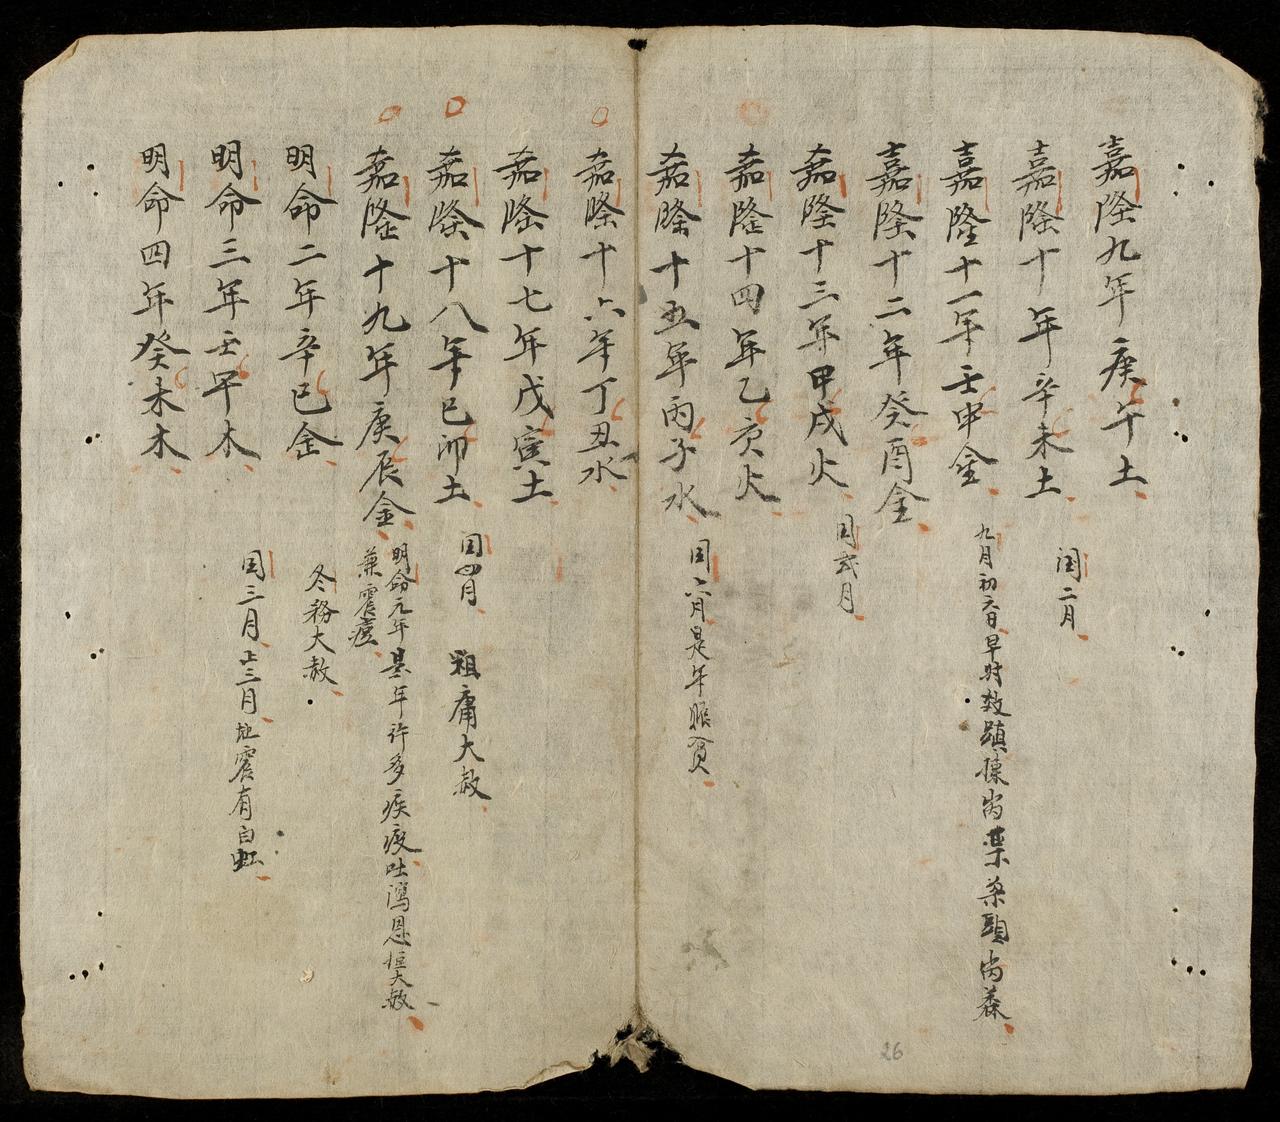 嘉隆九年庚午土
嘉隆十年辛未土 閏二月
嘉隆十一年壬申金 九月初六日早时
嘉隆十二年癸酉金
嘉隆十三年甲戌火 閏弍月
嘉隆十四年乙亥火
嘉隆十五年丙子水 閏六月是年賑貧
嘉隆十六年丁丑水
嘉隆十七年戊寅土
嘉隆十八年己卯土 閏四月 租庸大赦
嘉隆十九年庚辰金 明命元年 年许多疾疫吐瀉恩 大赦
兼震
明命二年辛巳金 冬務大赦
明命三年壬午木 閏三月 十三月地震有白虹
明命四年癸未木
26